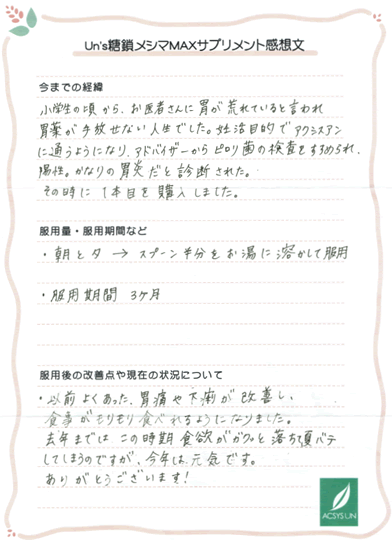 Un's糖鎖メシマMAXサプリメント感想文
今までの経緯
小学生の頃から、お医者さんに胃が荒れていると言われ
胃薬が手放せない人生でした。妊活目的でアクシスアン
に通うようになり、アドバイザーからピロリ菌の検査をすすめられ、
陽性。かなりの胃炎だと診断された。
その時に1本目を購入しました。
服用量・服用期間など
・朝と夕 → スプーン半分をお湯に溶かして服用
・服用期間 3ヶ月
服用後の改善点や現在の状況について
・以前よくあった、胃痛や下痢が改善し、
食事がもりもり食べれるようになりました。
去年まではこの時期食欲がガクッと落ちて夏バテ
してしまうのですが、今年は元気です。
ありがとうございます!
ACSYS UN